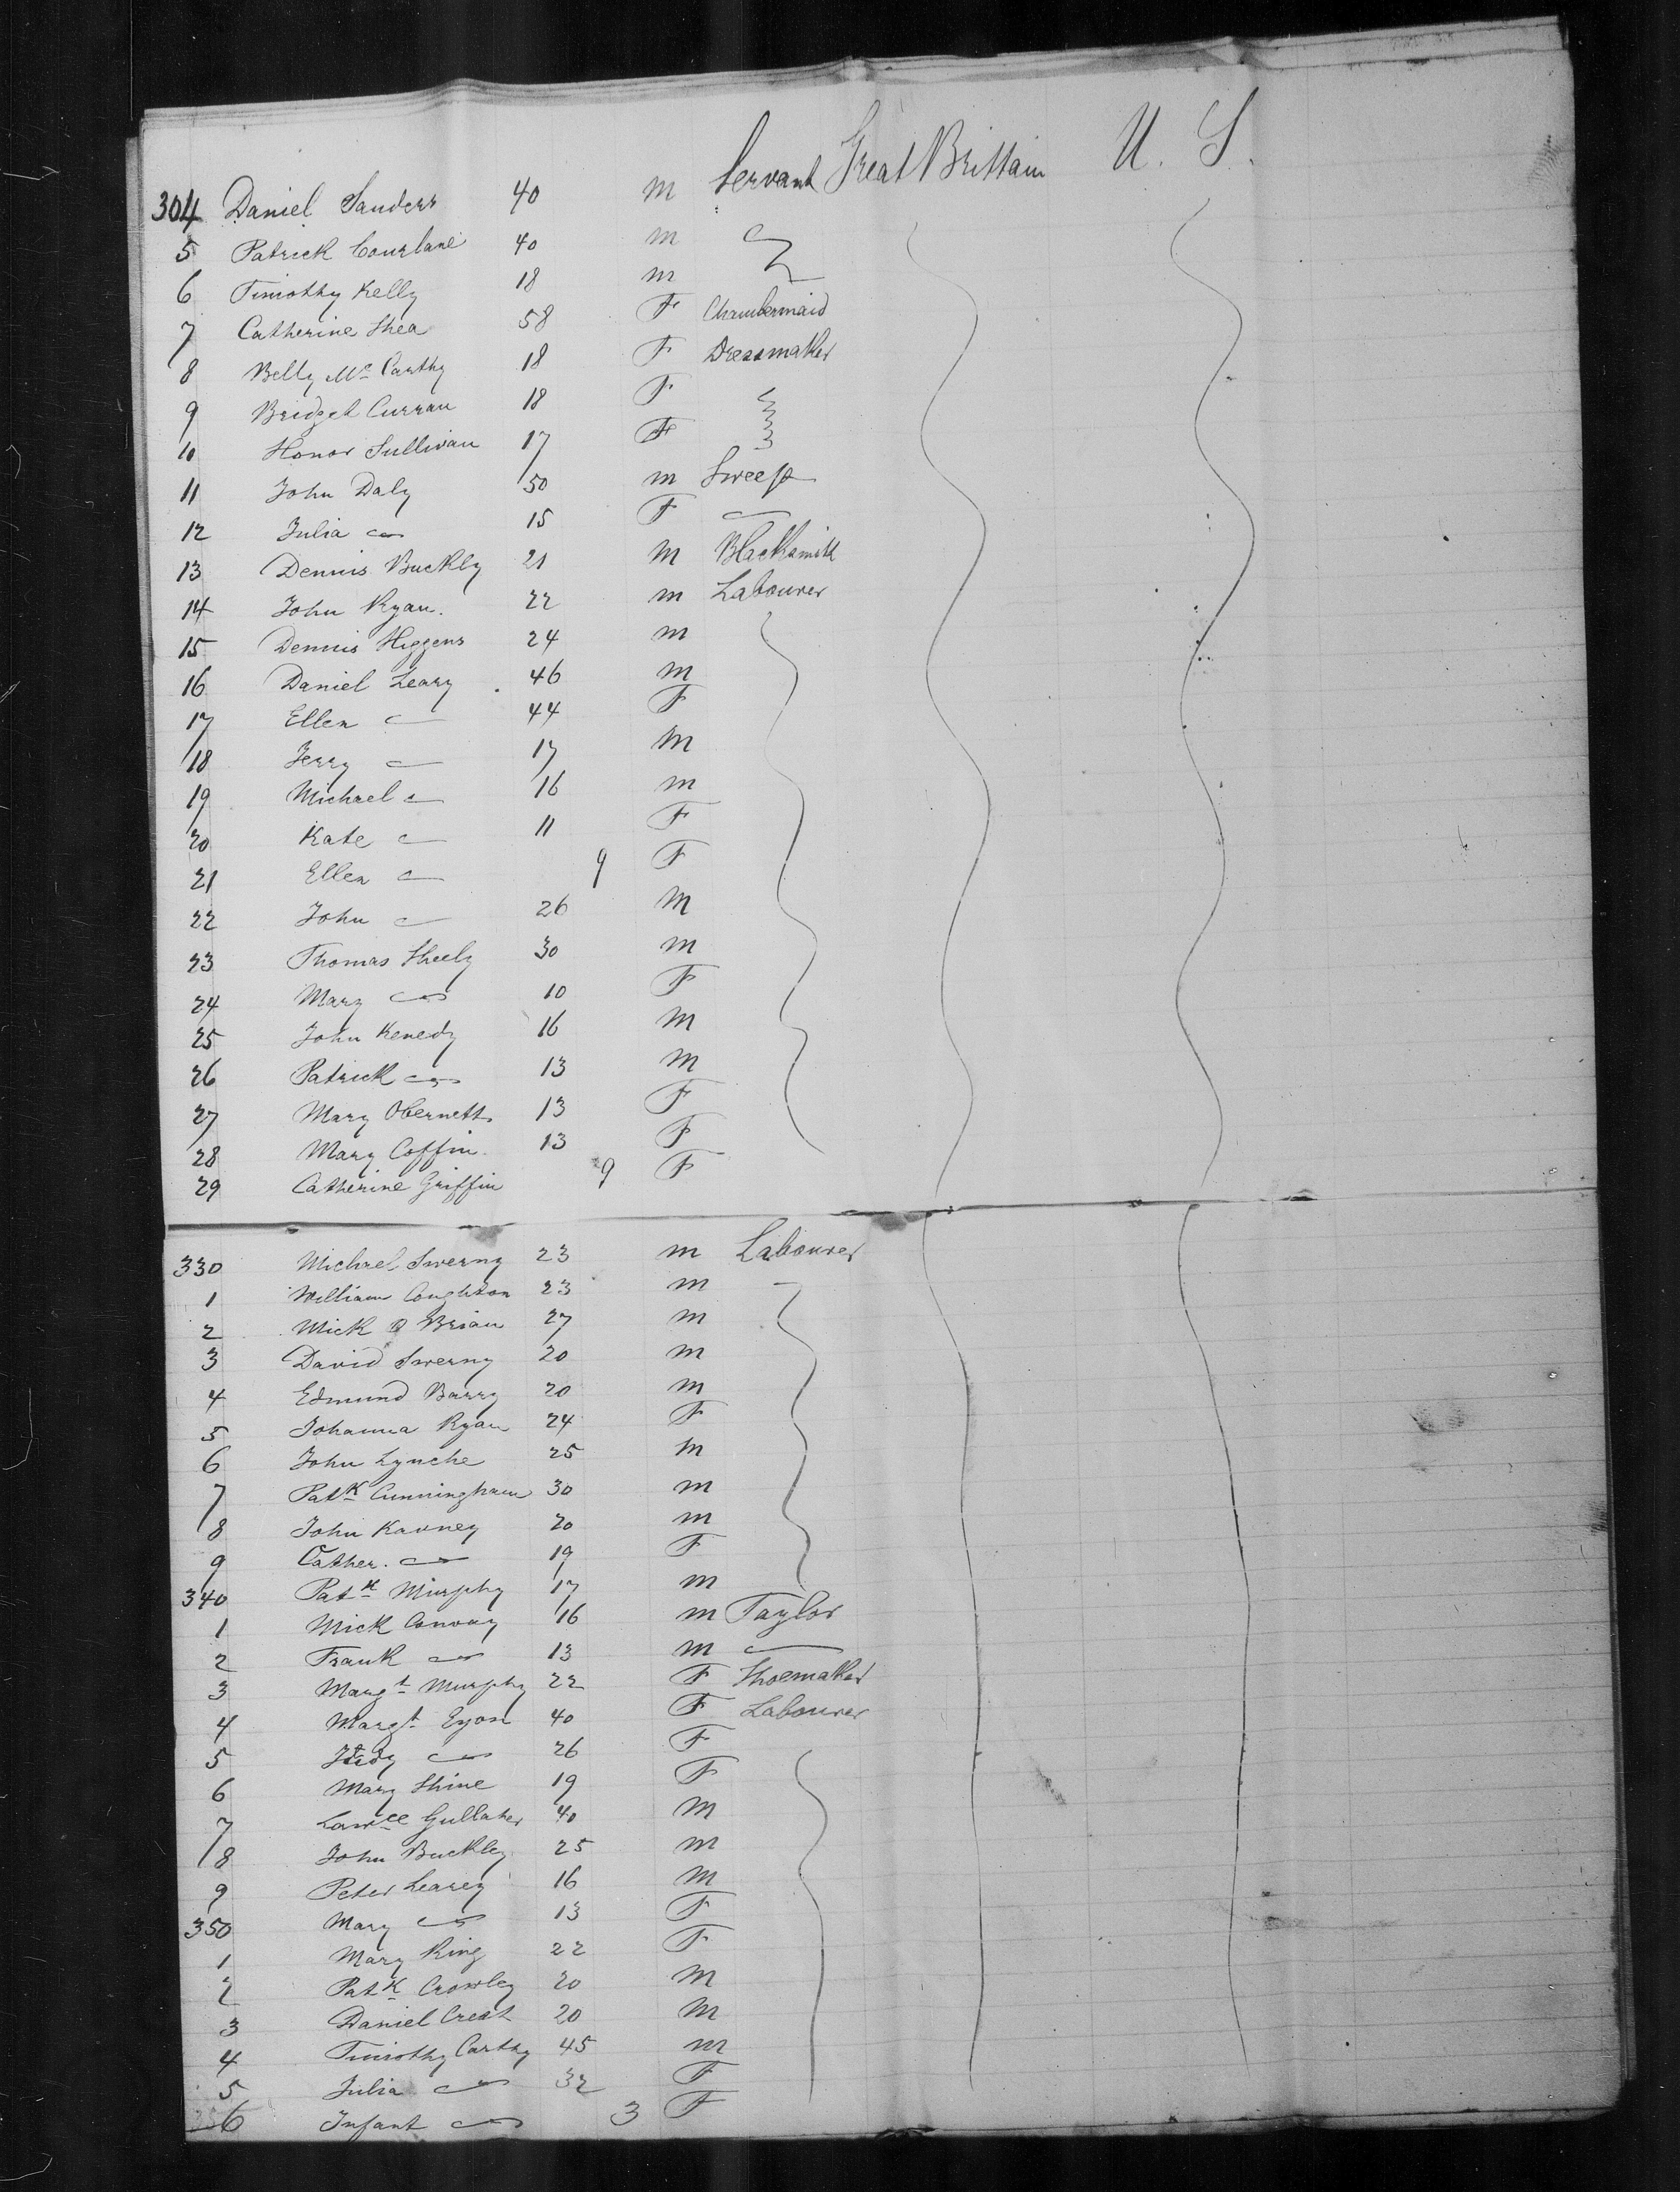 304 Daniel Sanders 40 m Servant Great Brittain U. S.
5 Patrick Courlane 40 m
6 Timothy Kelly 18 m
7 Catherine Shea 58 F Chambermaid
8 Betty Mc Carthy 18 F Dressmaker
9 Bridget Curran 18 F
10 Honor Sullivan 17 F
11 John Daly 50 m Sweep
12 Julia 15 F
13 Dennis Buckly 21 m Blacksmith
14 John Ryan. 22 m Labourer
15 Dennis Higgens 24 m
16 Daniel Leary 46 m
17 Ellen 44 F
18 Jerry 17 m
19 Michael 16 m
20 Kate 11 F
21 Ellen 9 F
22 John 26 m
23 Thomas Sheely 30 m
24 Mary 10 F
25 John Kenedy 16 m
26 Patrick 13 m
27 Mary 13 F
28 Mary Coffin 13 F
29 Catherine Griffin 9 F
330 Michael Swerny 23 m Labourer
1 William Coughlon 23 m
2 Mick O Brian 27 m
3 David Swerny 20 m
4 Edmund Barry 20 m
5 Johanna Ryan 24 F
6 John Lynche 25 m
7 Patk Cunningham 30 m
8 John Kavney 20 m
9 Cather. 19 F
340 Patk Murphy 17 m
1 Mick Conway 16 m Taylor
2 Frank 13 m
3 Margt Murphy 22 F Shoemaker
4 Margt Eyon 40 F Labourer
5 Judy 26 F
6 Mary Shine 19 F
7 Lawce Gullaher 40 m
8 John Buckley 25 m
9 Peter Learey 16 m
350 Mary 13 F
1 Mary King 22 F
2 Patk Crowley 20 m
3 Daniel 20 m
4 Timothy Carthy 45 m
5 Julia 32 F
6 Infant 3 F